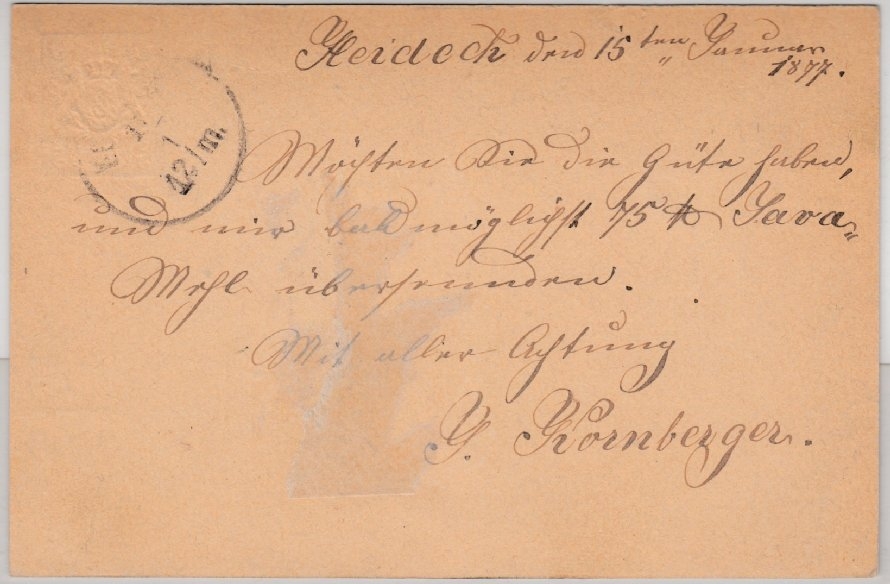 Heideck den 15ten Januar
1877.
Möchten Sie die Güte haben,
und mir baldmöglichst 75 ℔ Java-
Mehl übersennden.
Mit aller Achtung
J. Kornberger.